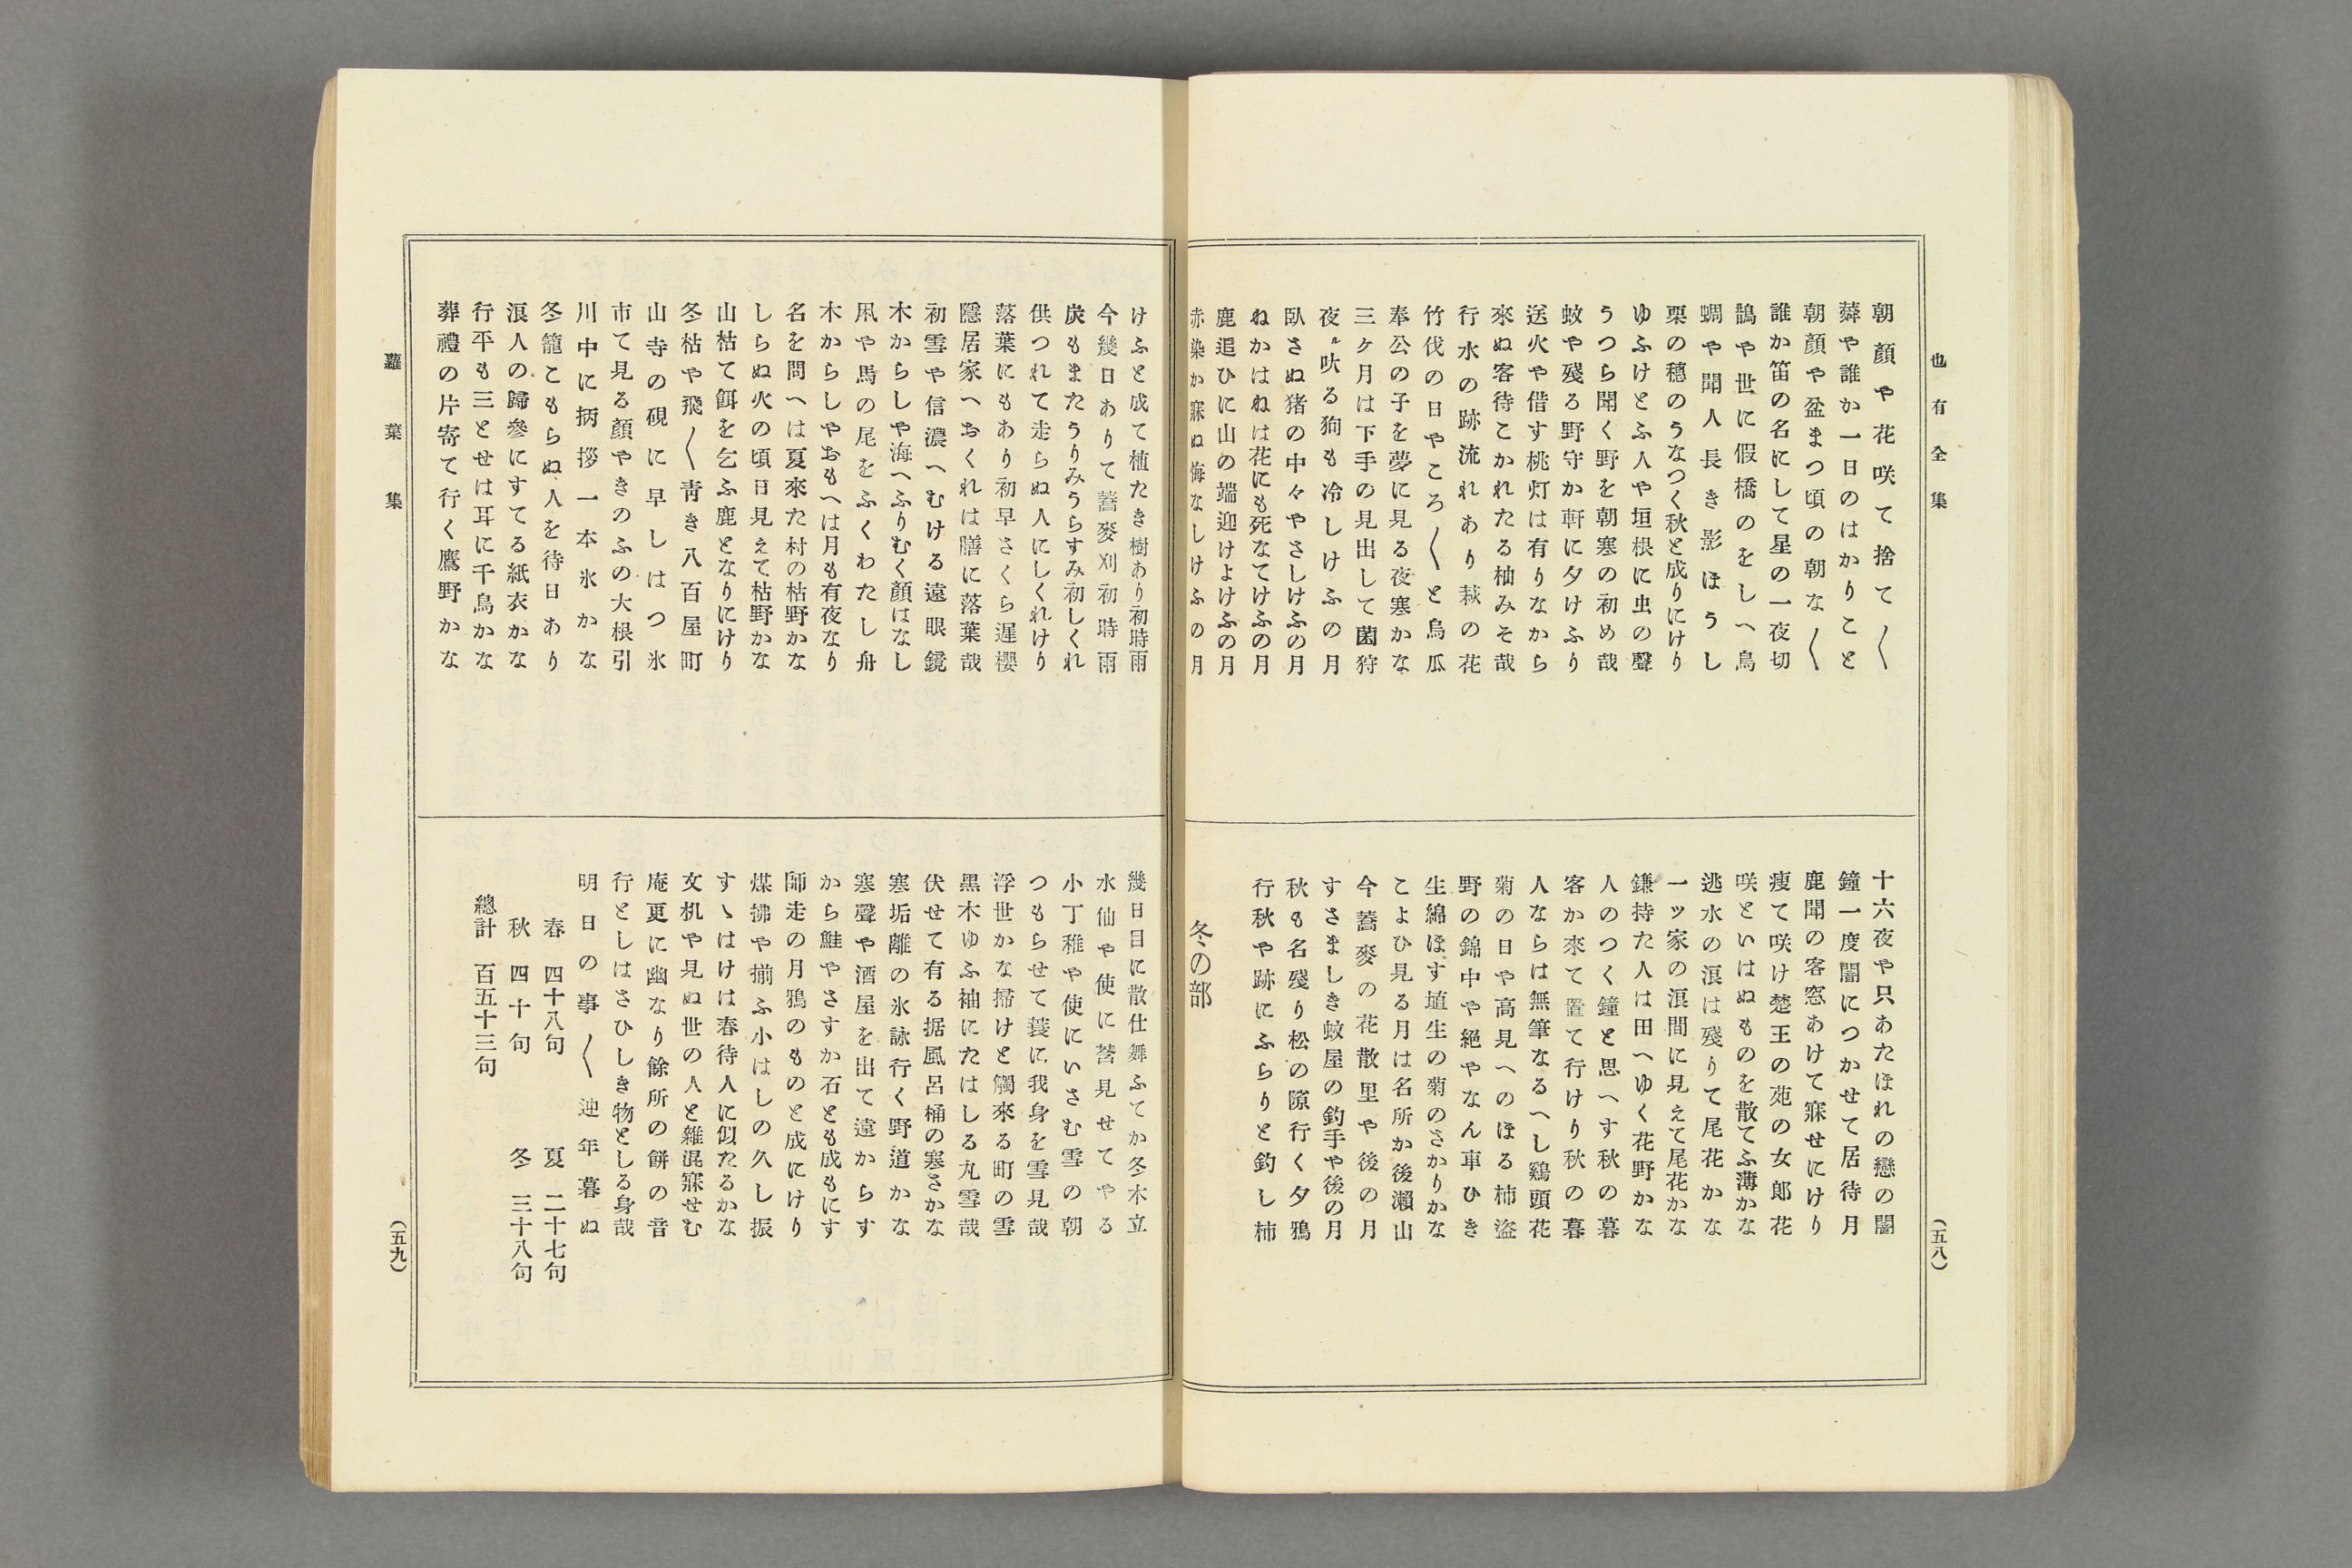 也有全集
(五八)
朝顏や花咲て捨て〱
蕣や誰か一日のはかりこと
朝顏や盆まつ頃の朝な〱
誰か笛の名にして星の一夜切
鵲や世に假橋のをしへ鳥
蜩や聞人長き影ほうし
粟の穗のうなつく秋と成りにけり
ゆふけとふ人や垣根に虫の聲
うつら聞く野を朝寒の初め哉
蚊や殘る野守か軒に夕けふり
送火や借す桃灯は有りなから
來ぬ客待こかれたる柚みそ哉
行水の跡流れあり萩の花
竹伐の日やころ〱と烏瓜
奉公の子を夢に見る夜寒かな
三ケ月は下手の見出して菌狩
夜ル吠る狗も冷しけふの月
臥さぬ猪の中々やさしけふの月
ぬかはねは花にも死なてけふの月
鹿追ひに山の端迎けよけふの月
赤染か寐ぬ悔なしけふの月
十六夜や只あたほれの戀の闇
鐘一度闇につかせて居待月
鹿聞の客窓あけて寐せにけり
瘦て咲け楚王の苑の女郎花
咲といはぬものを散てふ薄かな
逃水の浪は殘りて尾花かな
一ッ家の浪間に見えて尾花かな
鎌持た人は田へゆく花野かな
人のつく鐘と思へす秋の暮
客か來て置て行けり秋の暮
人ならは無筆なるへし鷄頭花
菊の日や高見へのほる柿盜
野の錦中や絕やなん車ひき
生綿ほす埴生の菊のさかりかな
こよひ見る月は名所か後瀨山
今蕎麥の花散里や後の月
すさましき蚊屋の釣手や後の月
秋も名殘り松の隙行く夕鴉
行秋や跡にふらりと釣し柿
冬の部
けふと成て植たき樹あり初時雨
今幾日ありて蕎麥刈初時雨
炭もまたうりみうらすみ初しくれ
供つれて走らぬ人にしくれけり
落葉にもあり初早さくら遲櫻
隱居家へおくれは膳に落葉哉
初雪や信濃へむける遠眼鏡
木からしや海へふりむく顏はなし
凩や馬の尾をふくわたし舟
木からしやおもへは月も有夜なり
名を問へは夏來た村の枯野かな
しらぬ火の頃日見えて枯野かな
山枯て餌を乞ふ鹿となりにけり
冬枯や飛〱靑き八百屋町
山寺の硯に早しはつ氷
市て見る顏やきのふの大根引
川中に柄拶一本氷かな
冬籠こもらぬ人を待日あり
浪人の歸參にすてる紙衣かな
行平も三とせは耳に千鳥かな
葬禮の片寄て行く鷹野かな
幾日目に散仕舞ふてか冬木立
水仙や使に莟見せてやる
小丁稚や使にいさむ雪の朝
つもらせて蓑に我身を雪見哉
浮世かな掃けと觸來る町の雪
黑木ゆふ袖にたはしる丸雪哉
伏せて有る据風呂桶の寒さかな
寒垢離の氷詠行く野道かな
寒聲や酒屋を出て遠からす
から鮭やさすか石とも成もにす
師走の月鴉のものと成にけり
煤拂や揃ふ小はしの久し振
すゝはけは春待人に似たるかな
文机や見ぬ世の人と雜混寐せむ
庵更に幽なり餘所の餅の音
行としはさひしき物としる身哉
明日の事〱迚年暮ぬ
春 四十八句 夏 二十七句
秋 四十句 冬 三十八句
總計 百五十三句
蘿葉集
(五九)